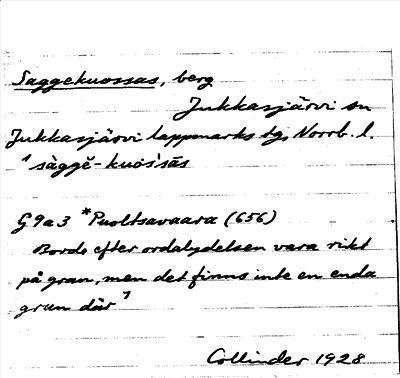 Saggekuossas, berg
Jukkasjärvi sn
Jukkasjärvi lappmarks tgs Norrb. l.
¹ sàggĕ-kuos̀sās
G 9a3 *Puoltsavaara (656)
Borde efter ordalydelsen vara rikt
på gran, men det finns inte en enda
gran där ¹
Collinder 1928